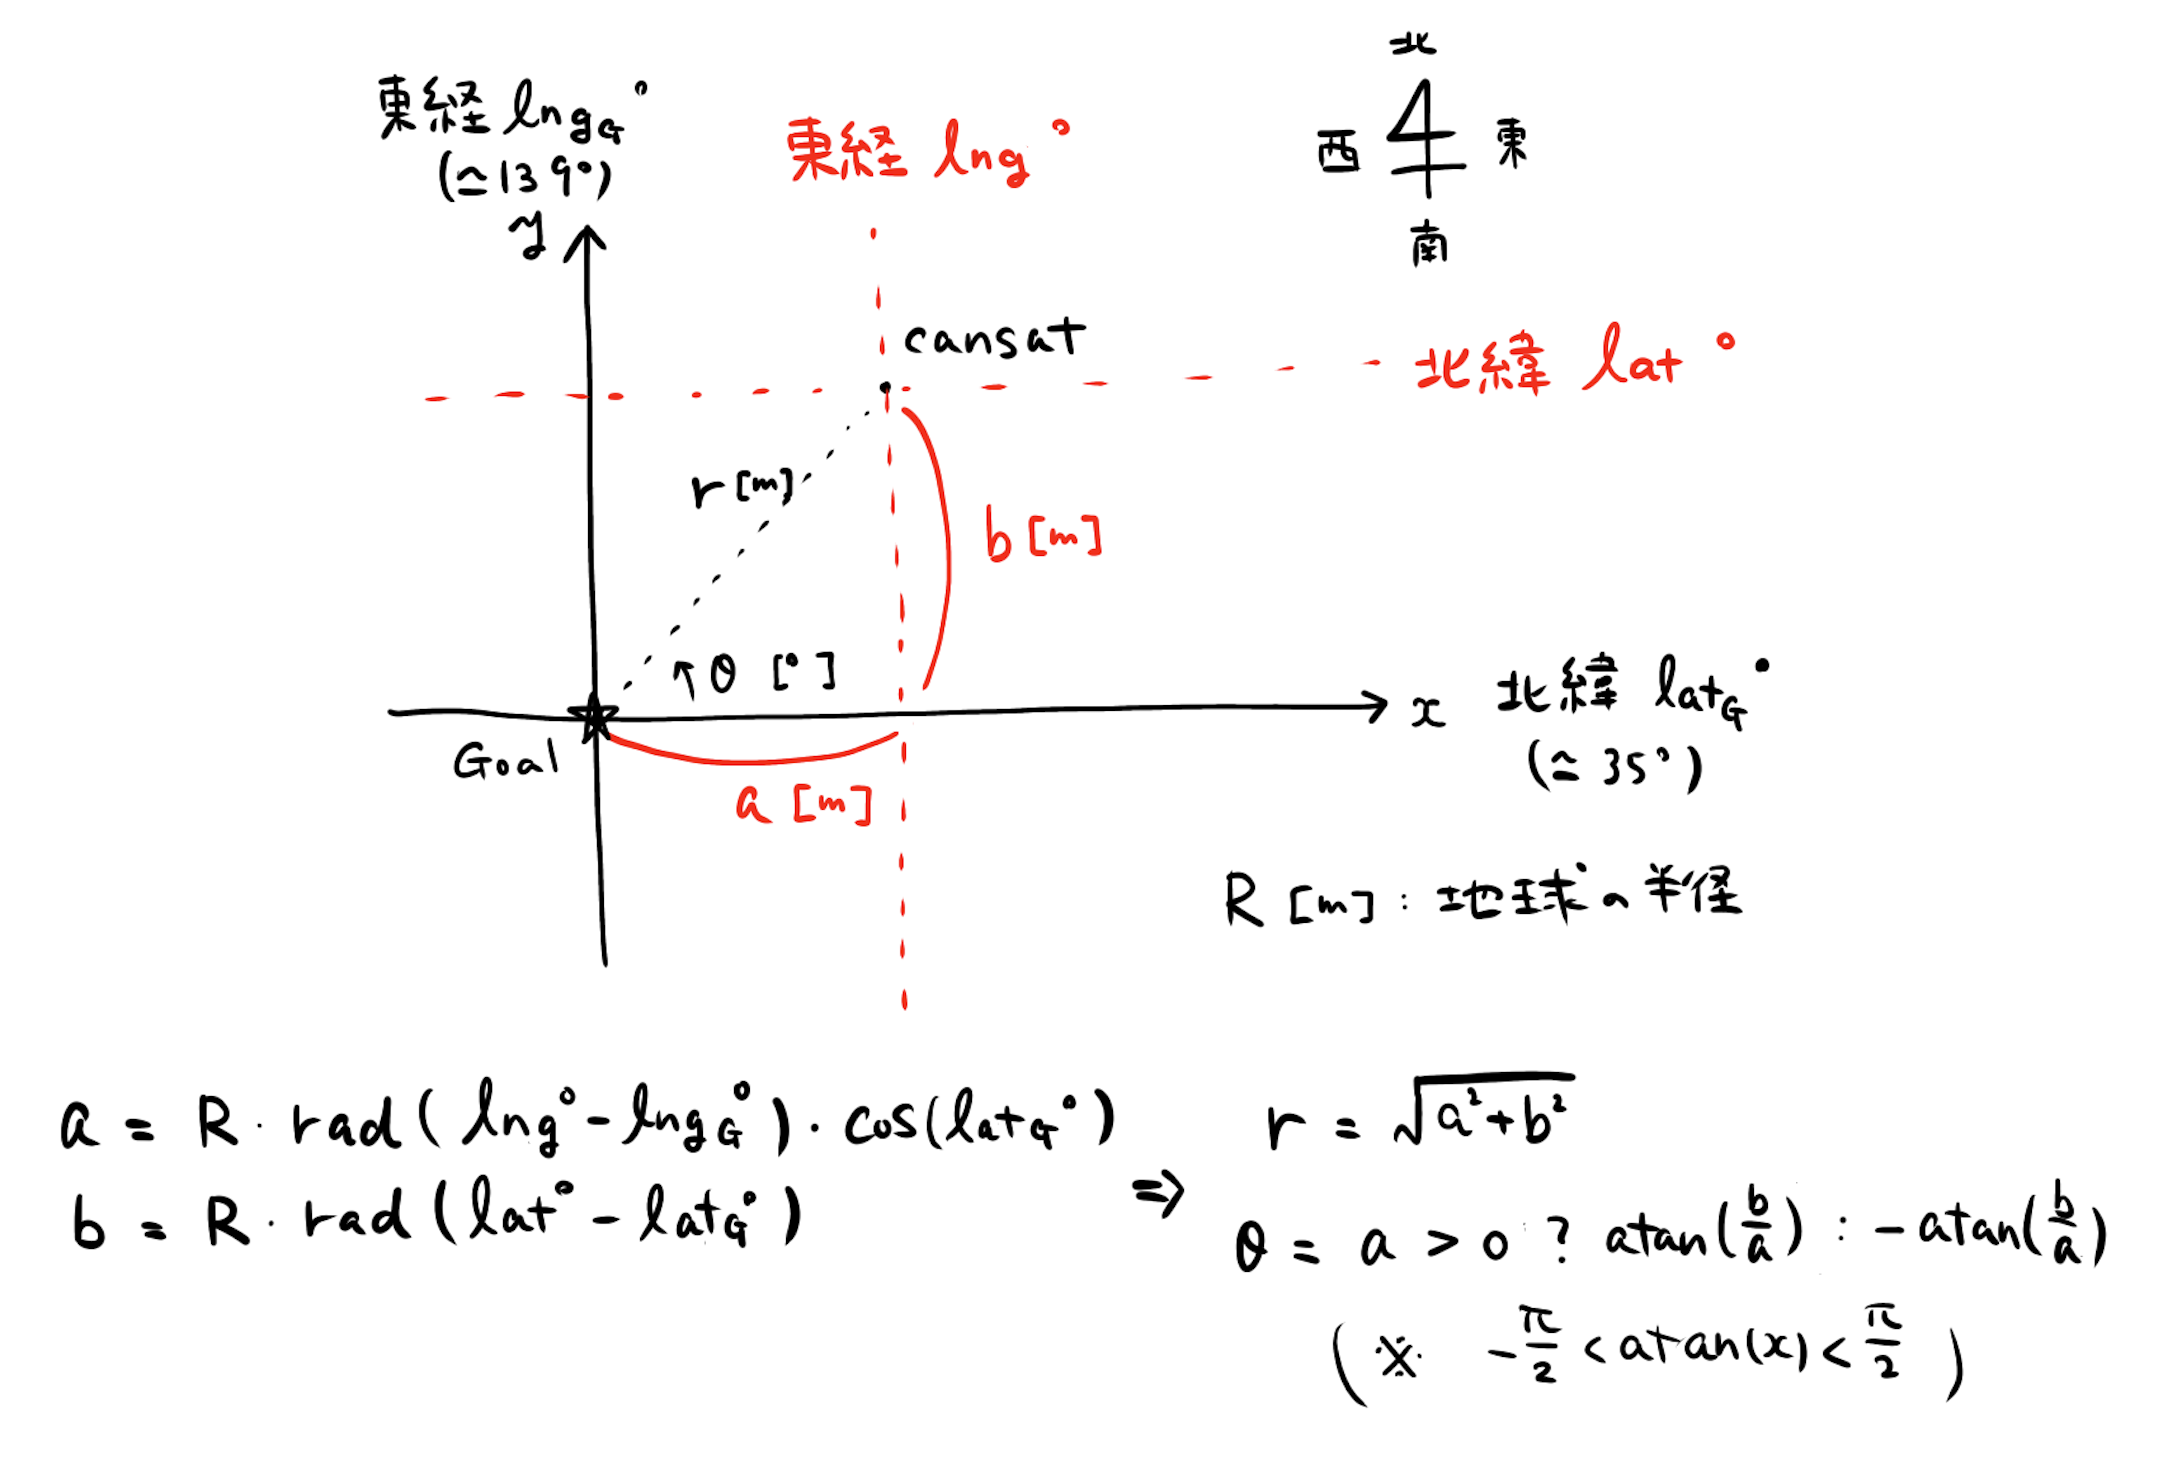 東経 lng_G°
(≃139°)
y
東経 lng°
北
西 東
南
cansat
北緯 lat°
r[m]
b[m]
θ [°]
x 北緯 lat_G°
(≃35°)
Goal
a [m]
R [m] : 地球の半径
a = R · rad( lng° - lng_G° ) · cos(lat_G°)
b = R · rad (lat° - lat_G°)
⇒
r = √a²+b²
θ = a > 0 ? atan(b/a) : -atan(b/a)
(※ -π/2 < atan(x) < π/2 )